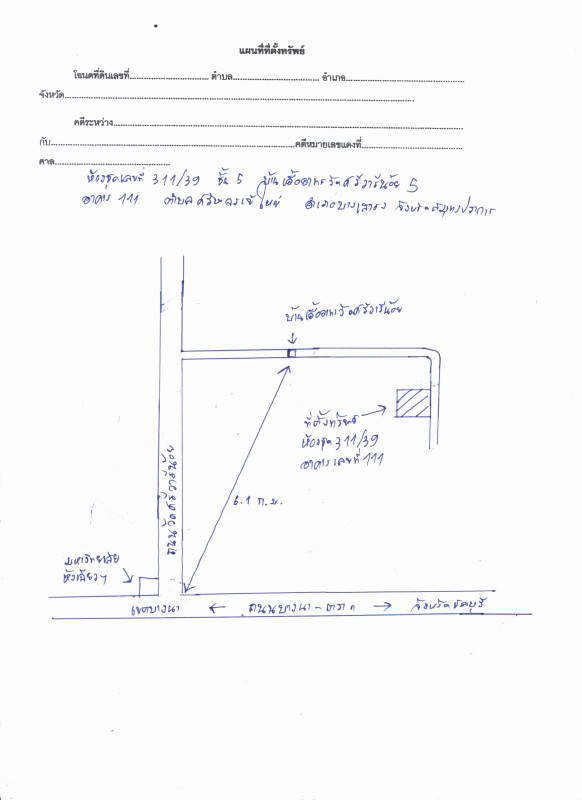 แผนที่ที่ตั้งทรัพย์
โฉนดที่ดินเลขที่.................................... ตำบล....................................... อำเภอ.....................................................
จังหวัด...........................................................................................................................................................
คดีระหว่าง...........................................................................................................................................................
กับ.............................................................................................................คดีหมายเลขแดงที่.............................................
ศาล....................................................
ห้องชุดเลขที่ 311/39 ชั้น 5 บ้านเอื้ออาทรวัดศรีวารีน้อย 5
อาคาร 111 ตำบลศรีษะจรเข้ใหญ่ อำเภอบางเสาธง จังหวัดสมุทรปราการ
บ้านเอื้ออาทรวัดศรีวารีน้อย
ที่ตั้งทรัพย์
ห้องชุด 311/39
อาคารเลขที่ 111
ถนนวัดศรีวารีน้อย
6.1 ก.ม.
มหาวิทยาลัย
หัวเฉียวฯ
เขตบางนา ← ถนนบางนา-ตราด → จังหวัดชลบุรี